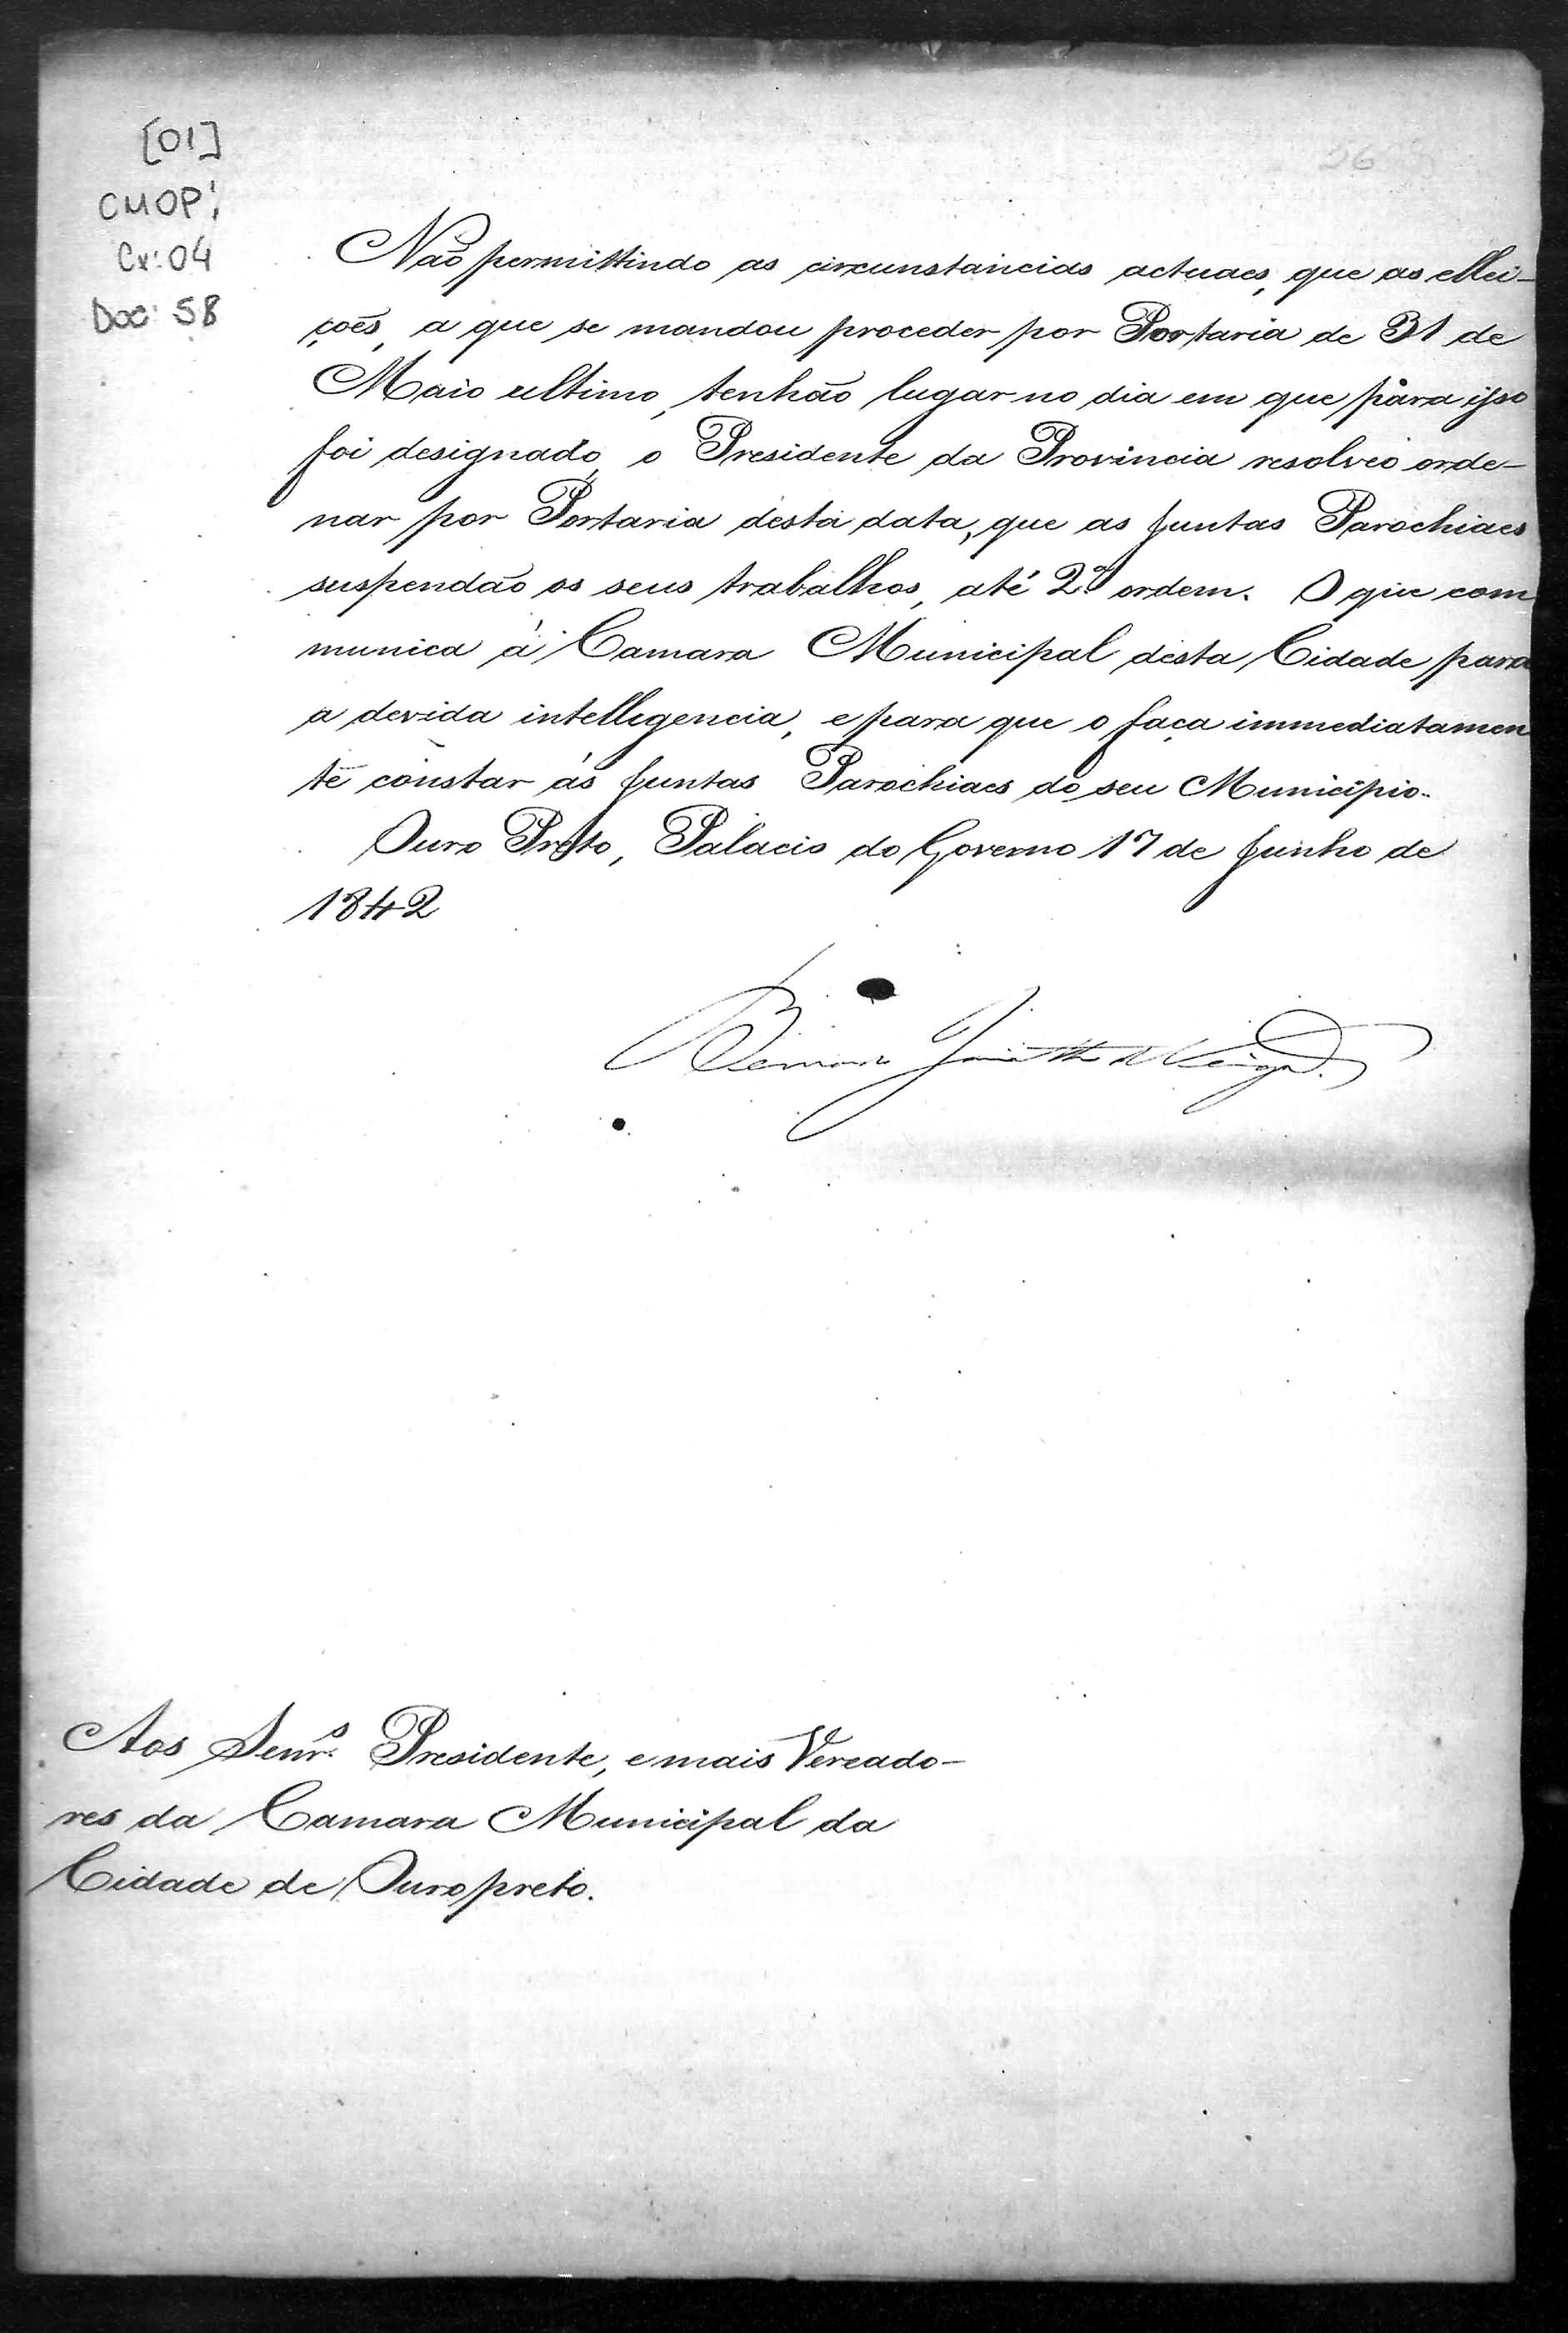 [01]
CMOP:
Cx: 04
Doc: 58
56
Não permittindo as circunstancias actuaes, que as ellei-
ções, a que se mandou proceder por Portaria de 31 de
Maio ultimo, tenhão lugar no dia em que para isso
foi designado, o Presidente da Provincia resolveo orde-
nar por Portaria desta data, que as Juntas Parochiaes
suspendão os seus trabalhos, até 2ª ordem. O que com
munica á Camara Municipal desta Cidade para
a devida intelligencia, e para que o faça immediatamen
te constar ás Juntas Parochiaes do seu Municipio.
Ouro Preto, Palacio do Governo 17 de Junho de
1842
Bernardo Jacintho da Veiga.
Aos Senrs. Presidente, e mais Vereado-
res da Camara Municipal da
Cidade de Ouropreto.